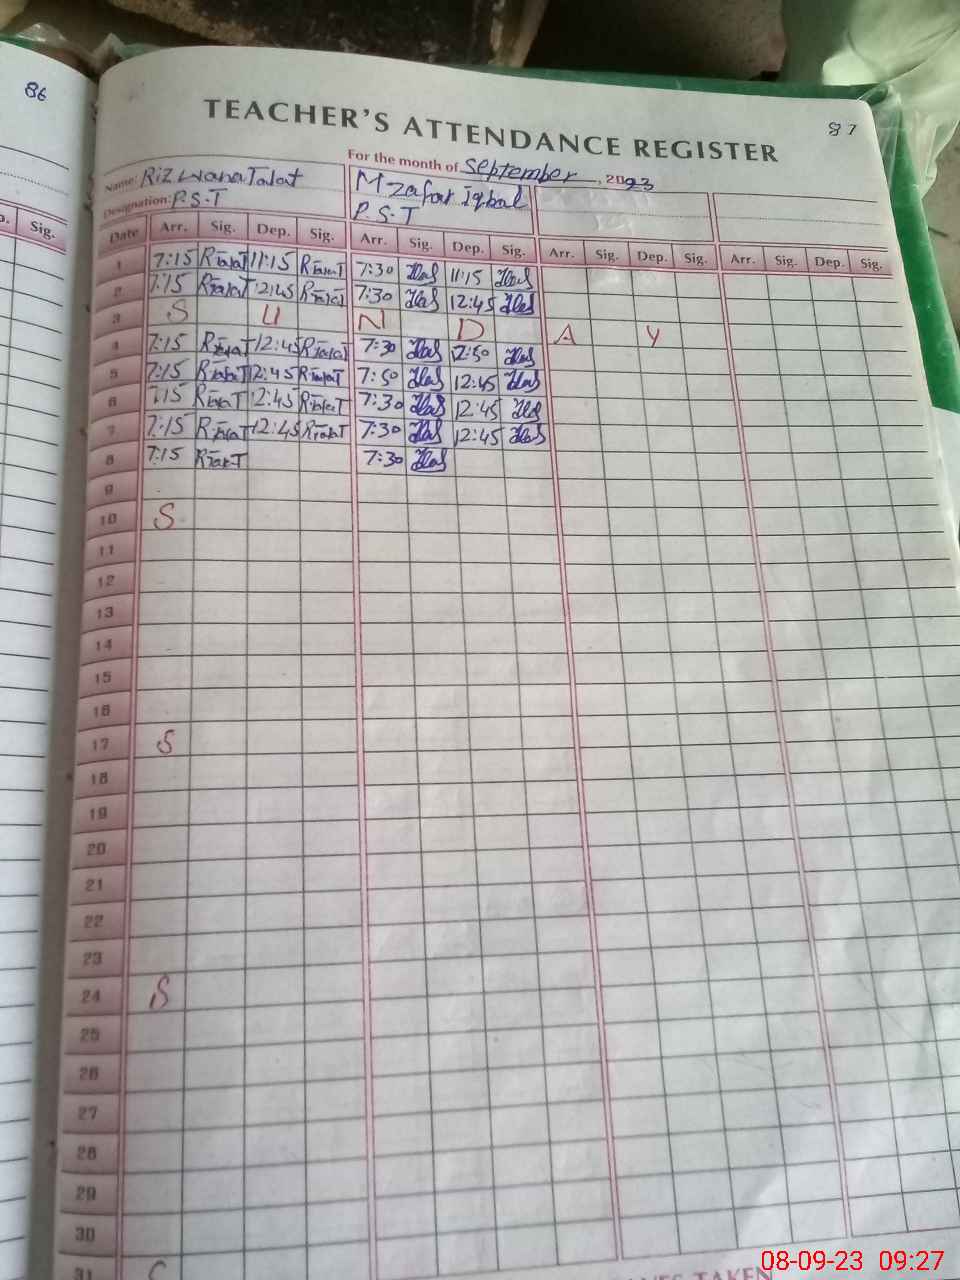 86
TEACHER'S ATTENDANCE REGISTER
87
For the month of September, 2023
Name: Rizwana Talat M Zafar Iqbal
Designation: P.S.T P.S.T
Sig.
Date Arr. Sig. Dep. Sig. Arr. Sig. Dep. Sig. Arr. Sig. Dep. Sig. Arr. Sig. Dep. Sig.
1 7:15 RTalaT 11:15 RTalaT 7:30 11:15
2 7:15 RTalaT 12:45 RTalaT 7:30 12:45
3 S U N D A Y
4 7:15 RTalaT 12:45 RTalaT 7:30 12:50
5 7:15 RTalaT 12:45 RTalaT 7:50 12:45
6 7:15 RTalaT 12:45 RTalaT 7:30 12:45
7 7:15 RTalaT 12:45 RTalaT 7:30 12:45
8 7:15 RTalaT 7:30
9
10 S
11
12
13
14
15
16
17 S
18
19
20
21
22
23
24 S
25
26
27
28
29
30
31
TAKEN
08-09-23 09:27